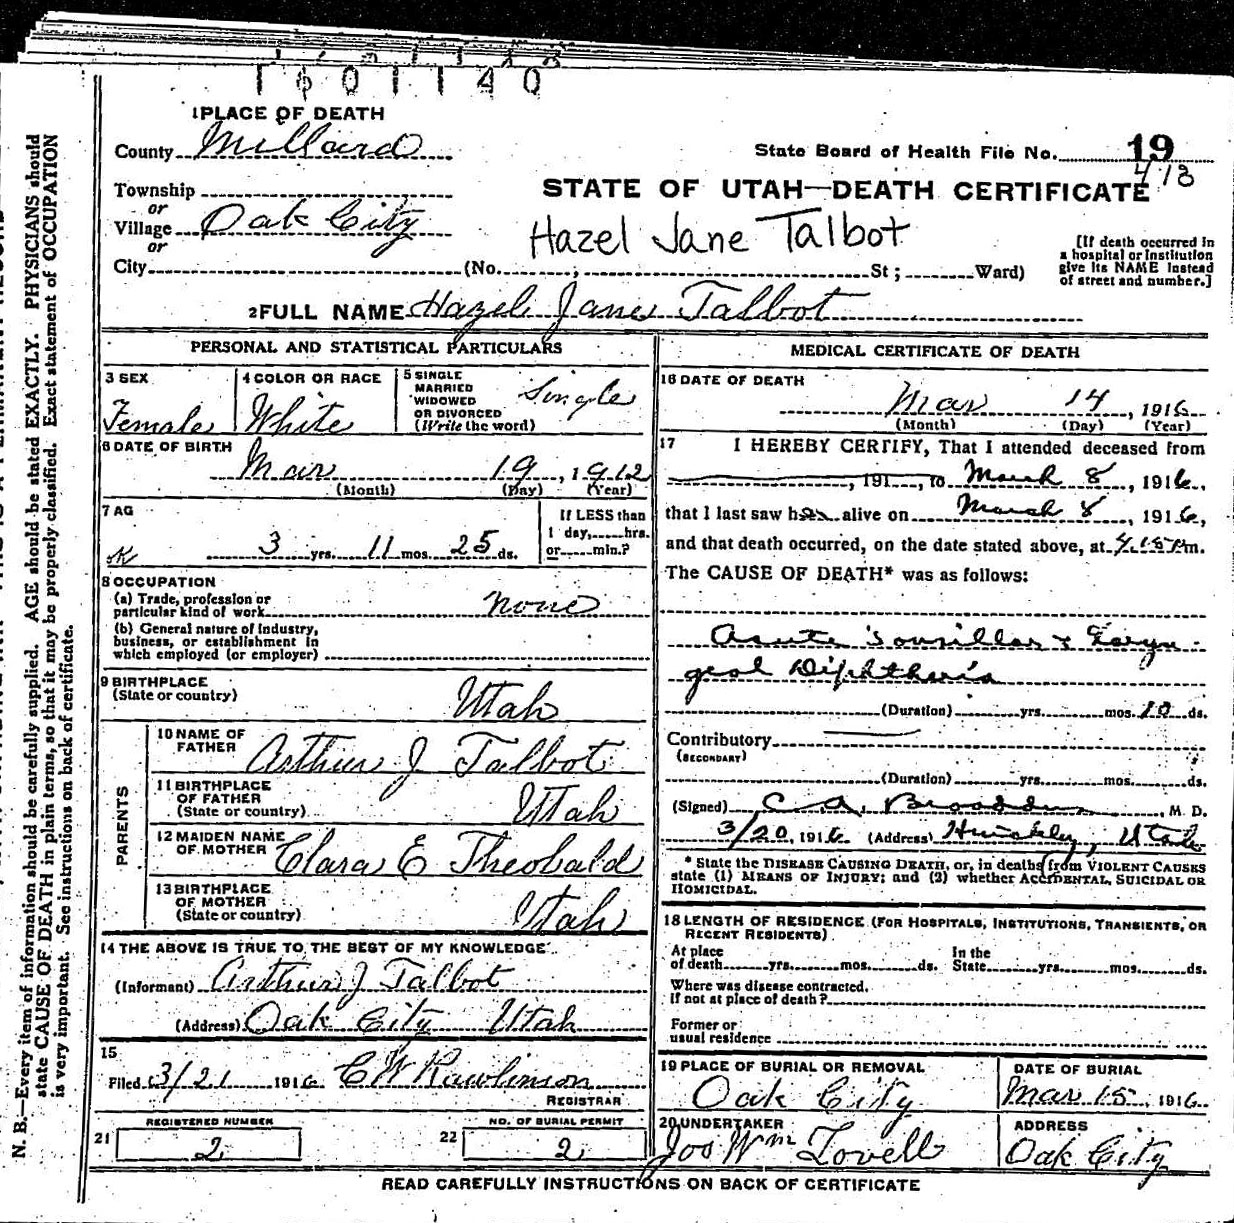 1601140
1 PLACE OF DEATH
County Millard
State Board of Health File No. 19
413
Township
or
STATE OF UTAH—DEATH CERTIFICATE
Village Oak City
or
Hazel Jane Talbot
City (No. ; St ; Ward)
[If death occurred in
a hospital or institution
give its NAME instead
of street and number.]
2 FULL NAME Hazel Jane Talbot
PERSONAL AND STATISTICAL PARTICULARS
3 SEX
Female
4 COLOR OR RACE
White
5 SINGLE
MARRIED
WIDOWED
OR DIVORCED
(Write the word)
Single
6 DATE OF BIRTH
Mar 19, 1912
(Month) (Day) (Year)
7 AG
3 yrs. 11 mos. 25 ds.
If LESS than
1 day, hrs.
or min.?
8 OCCUPATION
(a) Trade, profession or
particular kind of work none
(b) General nature of industry,
business, or establishment in
which employed (or employer)
9 BIRTHPLACE
(State or country) Utah
PARENTS
10 NAME OF
FATHER Arthur J Talbot
11 BIRTHPLACE
OF FATHER
(State or country) Utah
12 MAIDEN NAME
OF MOTHER Clara E Theobald
13 BIRTHPLACE
OF MOTHER
(State or country) Utah
14 THE ABOVE IS TRUE TO THE BEST OF MY KNOWLEDGE
(Informant) Arthur J Talbot
(Address) Oak City Utah
15
Filed 3/21 1916 C W Rawlinson
REGISTRAR
REGISTERED NUMBER
21 2
NO. OF BURIAL PERMIT
22 2
MEDICAL CERTIFICATE OF DEATH
16 DATE OF DEATH
Mar 14, 1916
(Month) (Day) (Year)
17 I HEREBY CERTIFY, That I attended deceased from
, 191 , to March 8, 1916,
that I last saw her alive on March 8, 1916,
and that death occurred, on the date stated above, at 4.15 Pm.
The CAUSE OF DEATH* was as follows:
Acute Tonsillar & Laryn-
geal Diphtheria
(Duration) yrs. mos. 10 ds.
Contributory
(SECONDARY)
(Duration) yrs. mos. ds.
(Signed) C A. Broaddus, M. D.
3/20, 1916 (Address) Hinckley, Utah
* State the DISEASE CAUSING DEATH, or, in deaths from VIOLENT CAUSES
state (1) MEANS OF INJURY; and (2) whether ACCIDENTAL, SUICIDAL OR
HOMICIDAL.
18 LENGTH OF RESIDENCE (FOR HOSPITALS, INSTITUTIONS, TRANSIENTS, OR
RECENT RESIDENTS)
At place
of death yrs. mos. ds. In the
State yrs. mos. ds.
Where was disease contracted,
if not at place of death?
Former or
usual residence
19 PLACE OF BURIAL OR REMOVAL
Oak City
DATE OF BURIAL
Mar 15, 1916
20 UNDERTAKER
Jos Wm Lovell
ADDRESS
Oak City
READ CAREFULLY INSTRUCTIONS ON BACK OF CERTIFICATE
N. B.—Every item of information should be carefully supplied. AGE should be stated EXACTLY. PHYSICIANS should
state CAUSE OF DEATH in plain terms, so that it may be properly classified. Exact statement of OCCUPATION
is very important. See instructions on back of certificate.